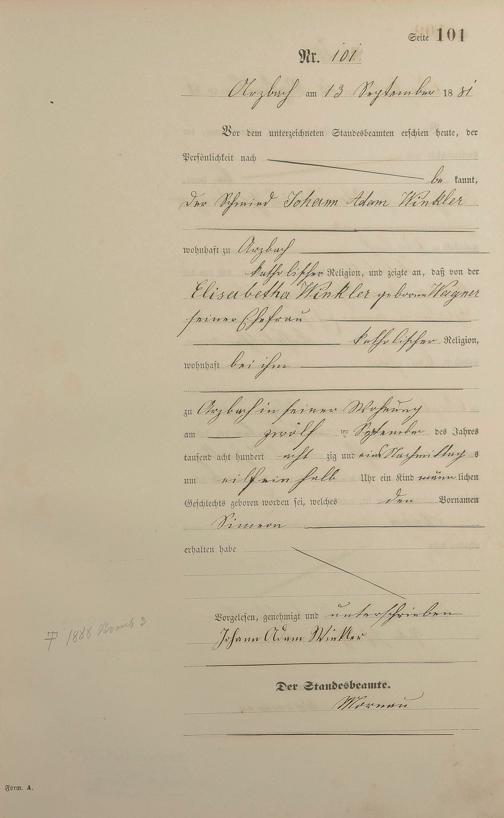 Seite 101
Nr. 101
Arzbach am 13 September 1881
Vor dem unterzeichneten Standesbeamten erschien heute, der
Persönlichkeit nach
be kannt,
der Schmied Johann Adam Winkler
wohnhaft zu Arzbach
katholischer Religion, und zeigte an, daß von der
Elisabetha Winkler geborne Wagner
seiner Ehefrau
katholischer Religion,
wohnhaft bei ihm
zu Arzbach in seiner Wohnung
am zwölf ten September des Jahres
tausend acht hundert acht zig und eins Nachmittag s
um eilf ein halb Uhr ein Kind männ lichen
Geschlechts geboren worden sei, welches den Vornamen
Simeon
erhalten habe
Vorgelesen, genehmigt und unterschrieben
Johann Adam Winkler
Der Standesbeamte.
† 1888
Form. A.